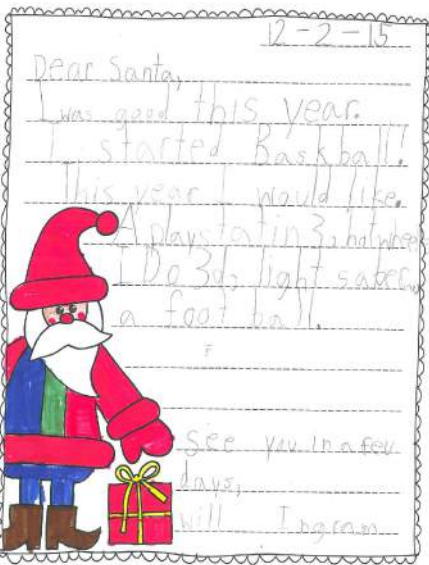 12-2-15
Dear Santa,
I was good this year.
I started Baskball!
This year I would like.
A playstatin 3, hotwheels
I Do 3d, light saber,
a foot ball.
see you in a few
days,
will Ingram